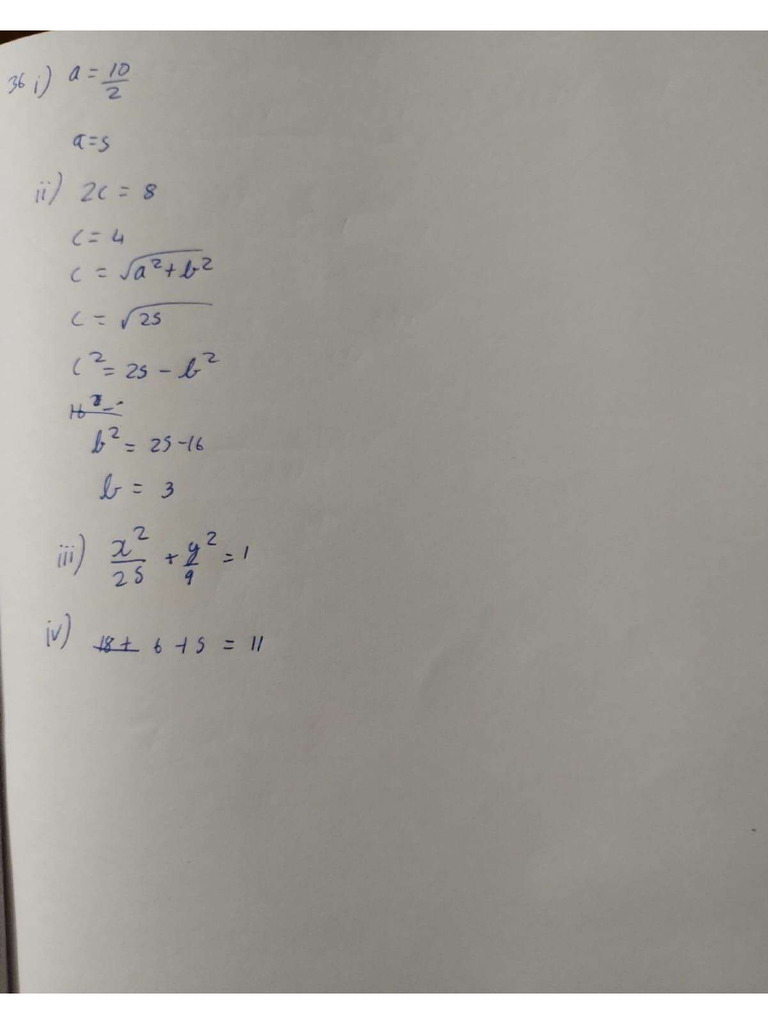 36 i) a = 10/2
a = 5
ii) 2c = 8
c = 4
c = √(a² + b²)
c = √25
c² = 25 - b²
b² = 25 - 16
b = 3
iii) x²/25 + y²/9 = 1
iv) 18 + 6 + 5 = 11